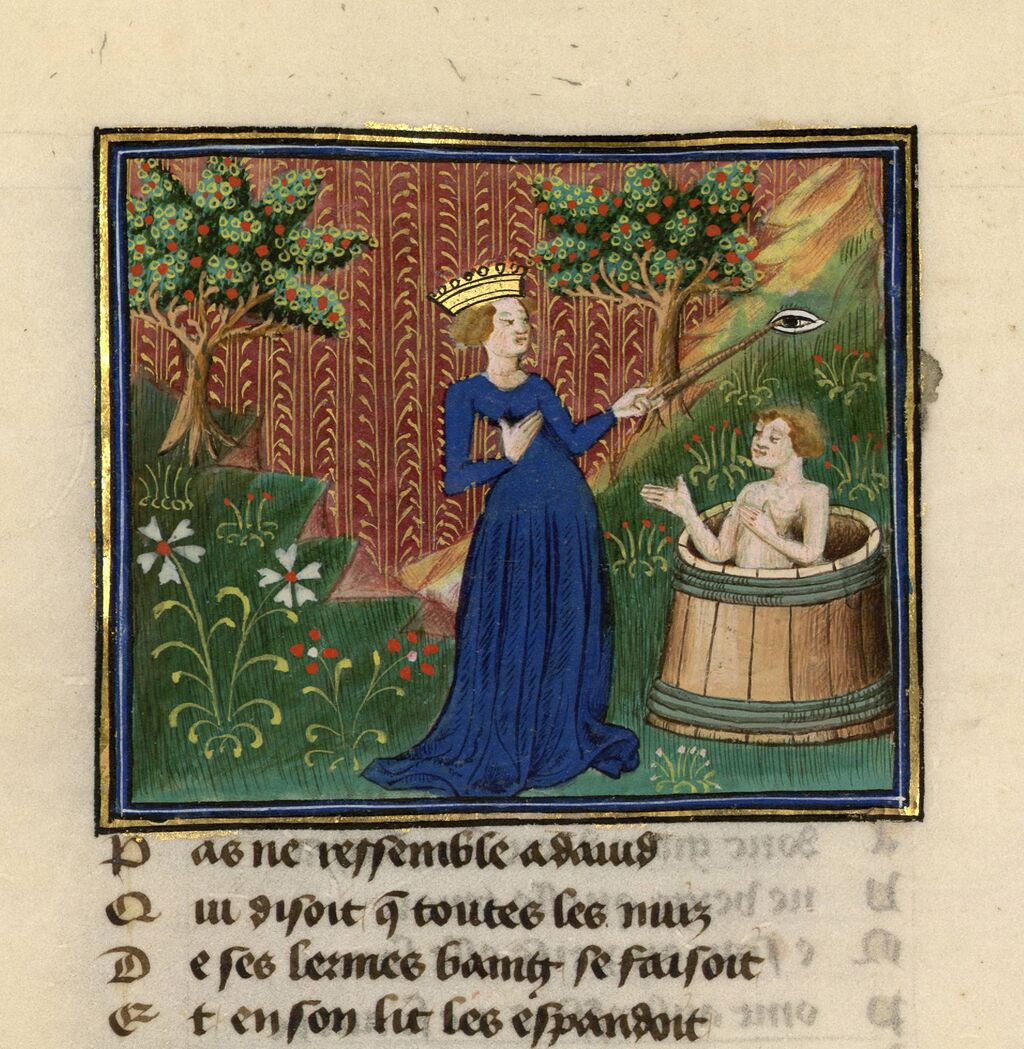 Pas ne ressemble a dauid
Qui disoit q̃ toutes les nuiz
De ses lermes baing se faisoit
Et en son lit les espandoit